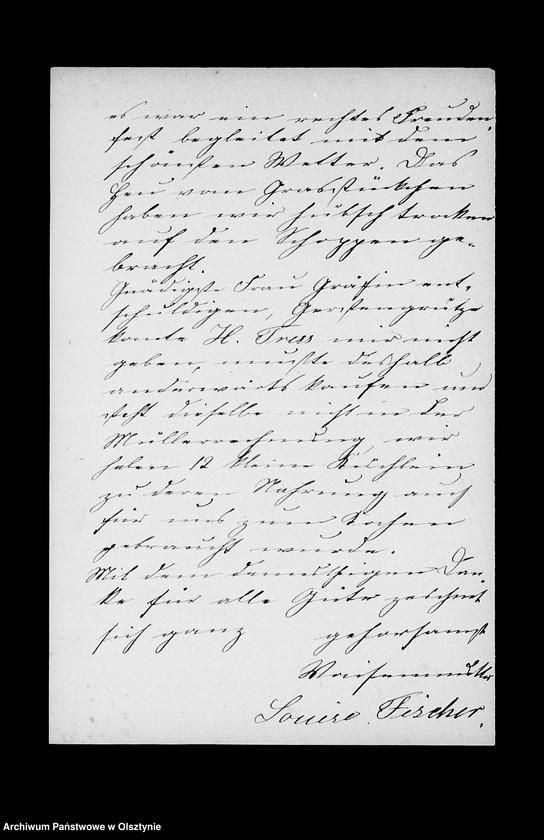 es war ein rechtes Freuden,
fest begleitet mit dem
schönsten Wetter. Das
Heu vom Grasstückchen
haben wir hübsch trocken
auf den Schoppen ge-
bracht.
Gnädigste Frau Gräfin ent-
schuldigen, Gerstengrütze
konte H. Tress mir nicht
geben, mußte deshalb
anderwärts kaufen und
steht dieselbe nicht in der
Müllerrechnung, wir
haben 12 kleine
zu deren Nahrung auch
für uns zum Kochen
gebraucht wurde.
Mit dem demuthigen Dan-
ke für alle Güte zeichnet
sich ganz gehorsamst
Waisenmutter
Louise Fischer.
Archiwum Państwowe w Olsztynie